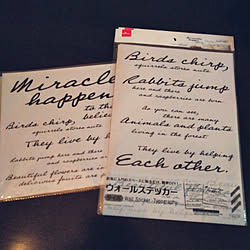 Miracle
happen
to the
believe
Birds chirp,
squirrels store nuts.
They live by he
rabbits jump here and there
and raspberries are
Beautiful flowers are in
delicious fruits are
Birds chirp,
squirrels store nuts.
Rabbits jump
here and there
and raspberries are born
As you can see,
there are many
Animals and plants
living in the forest.
They live by helping
Each other.
ウォールステッカー
Wall Sticker -Typography-